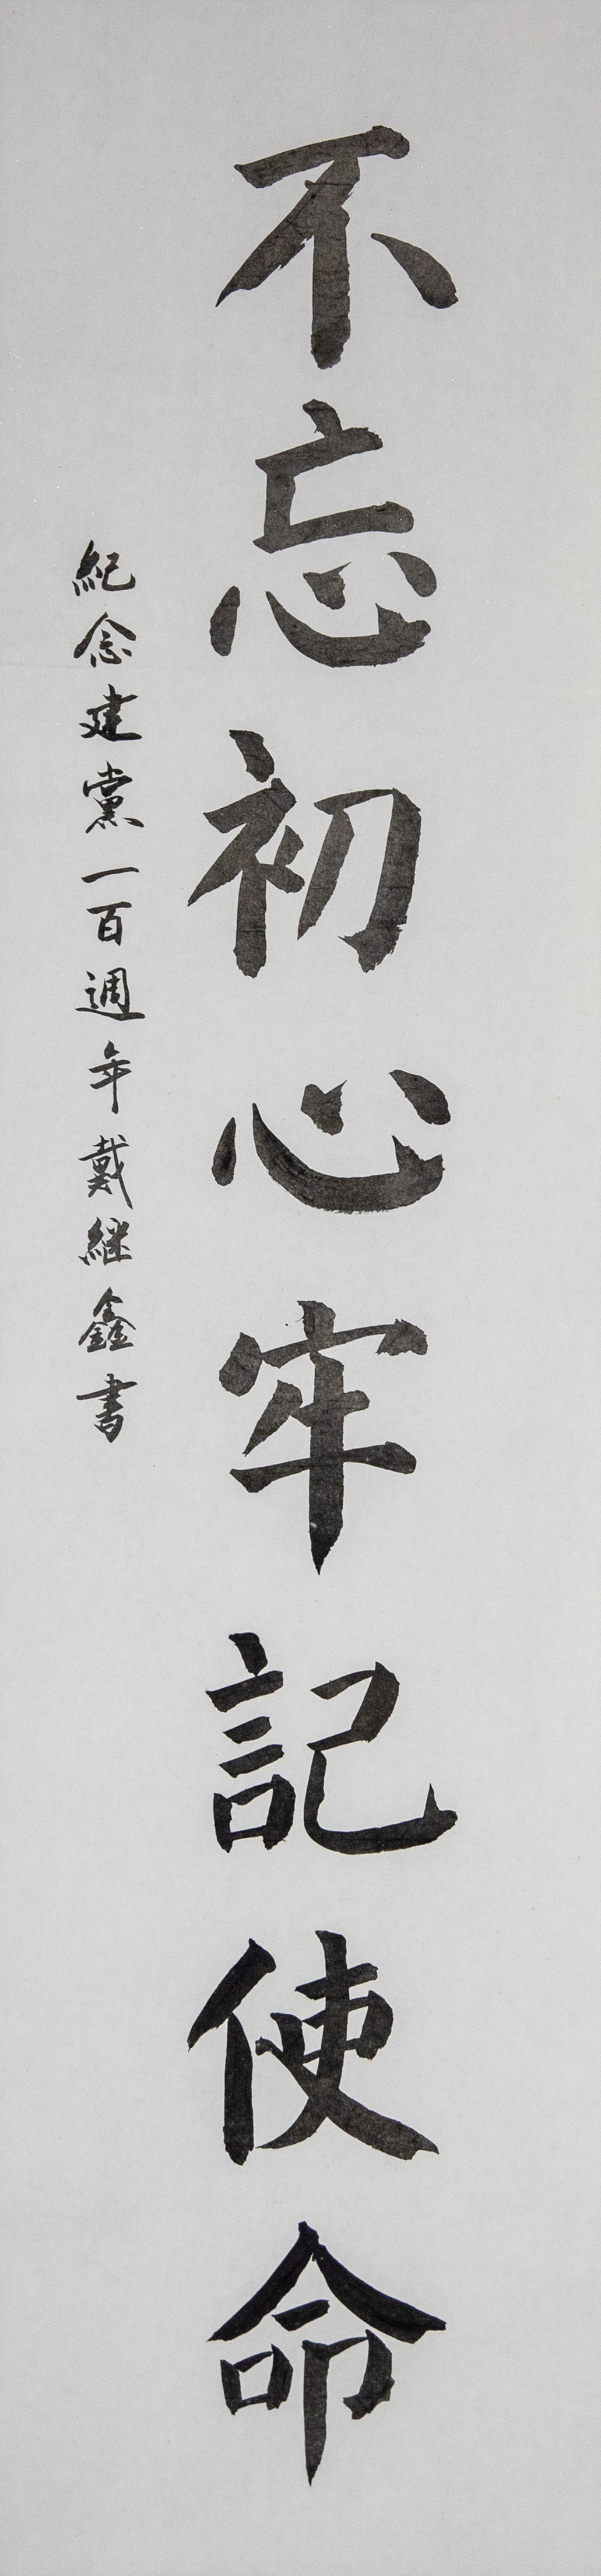 不忘初心牢記使命
紀念建黨一百週年戴継鑫書